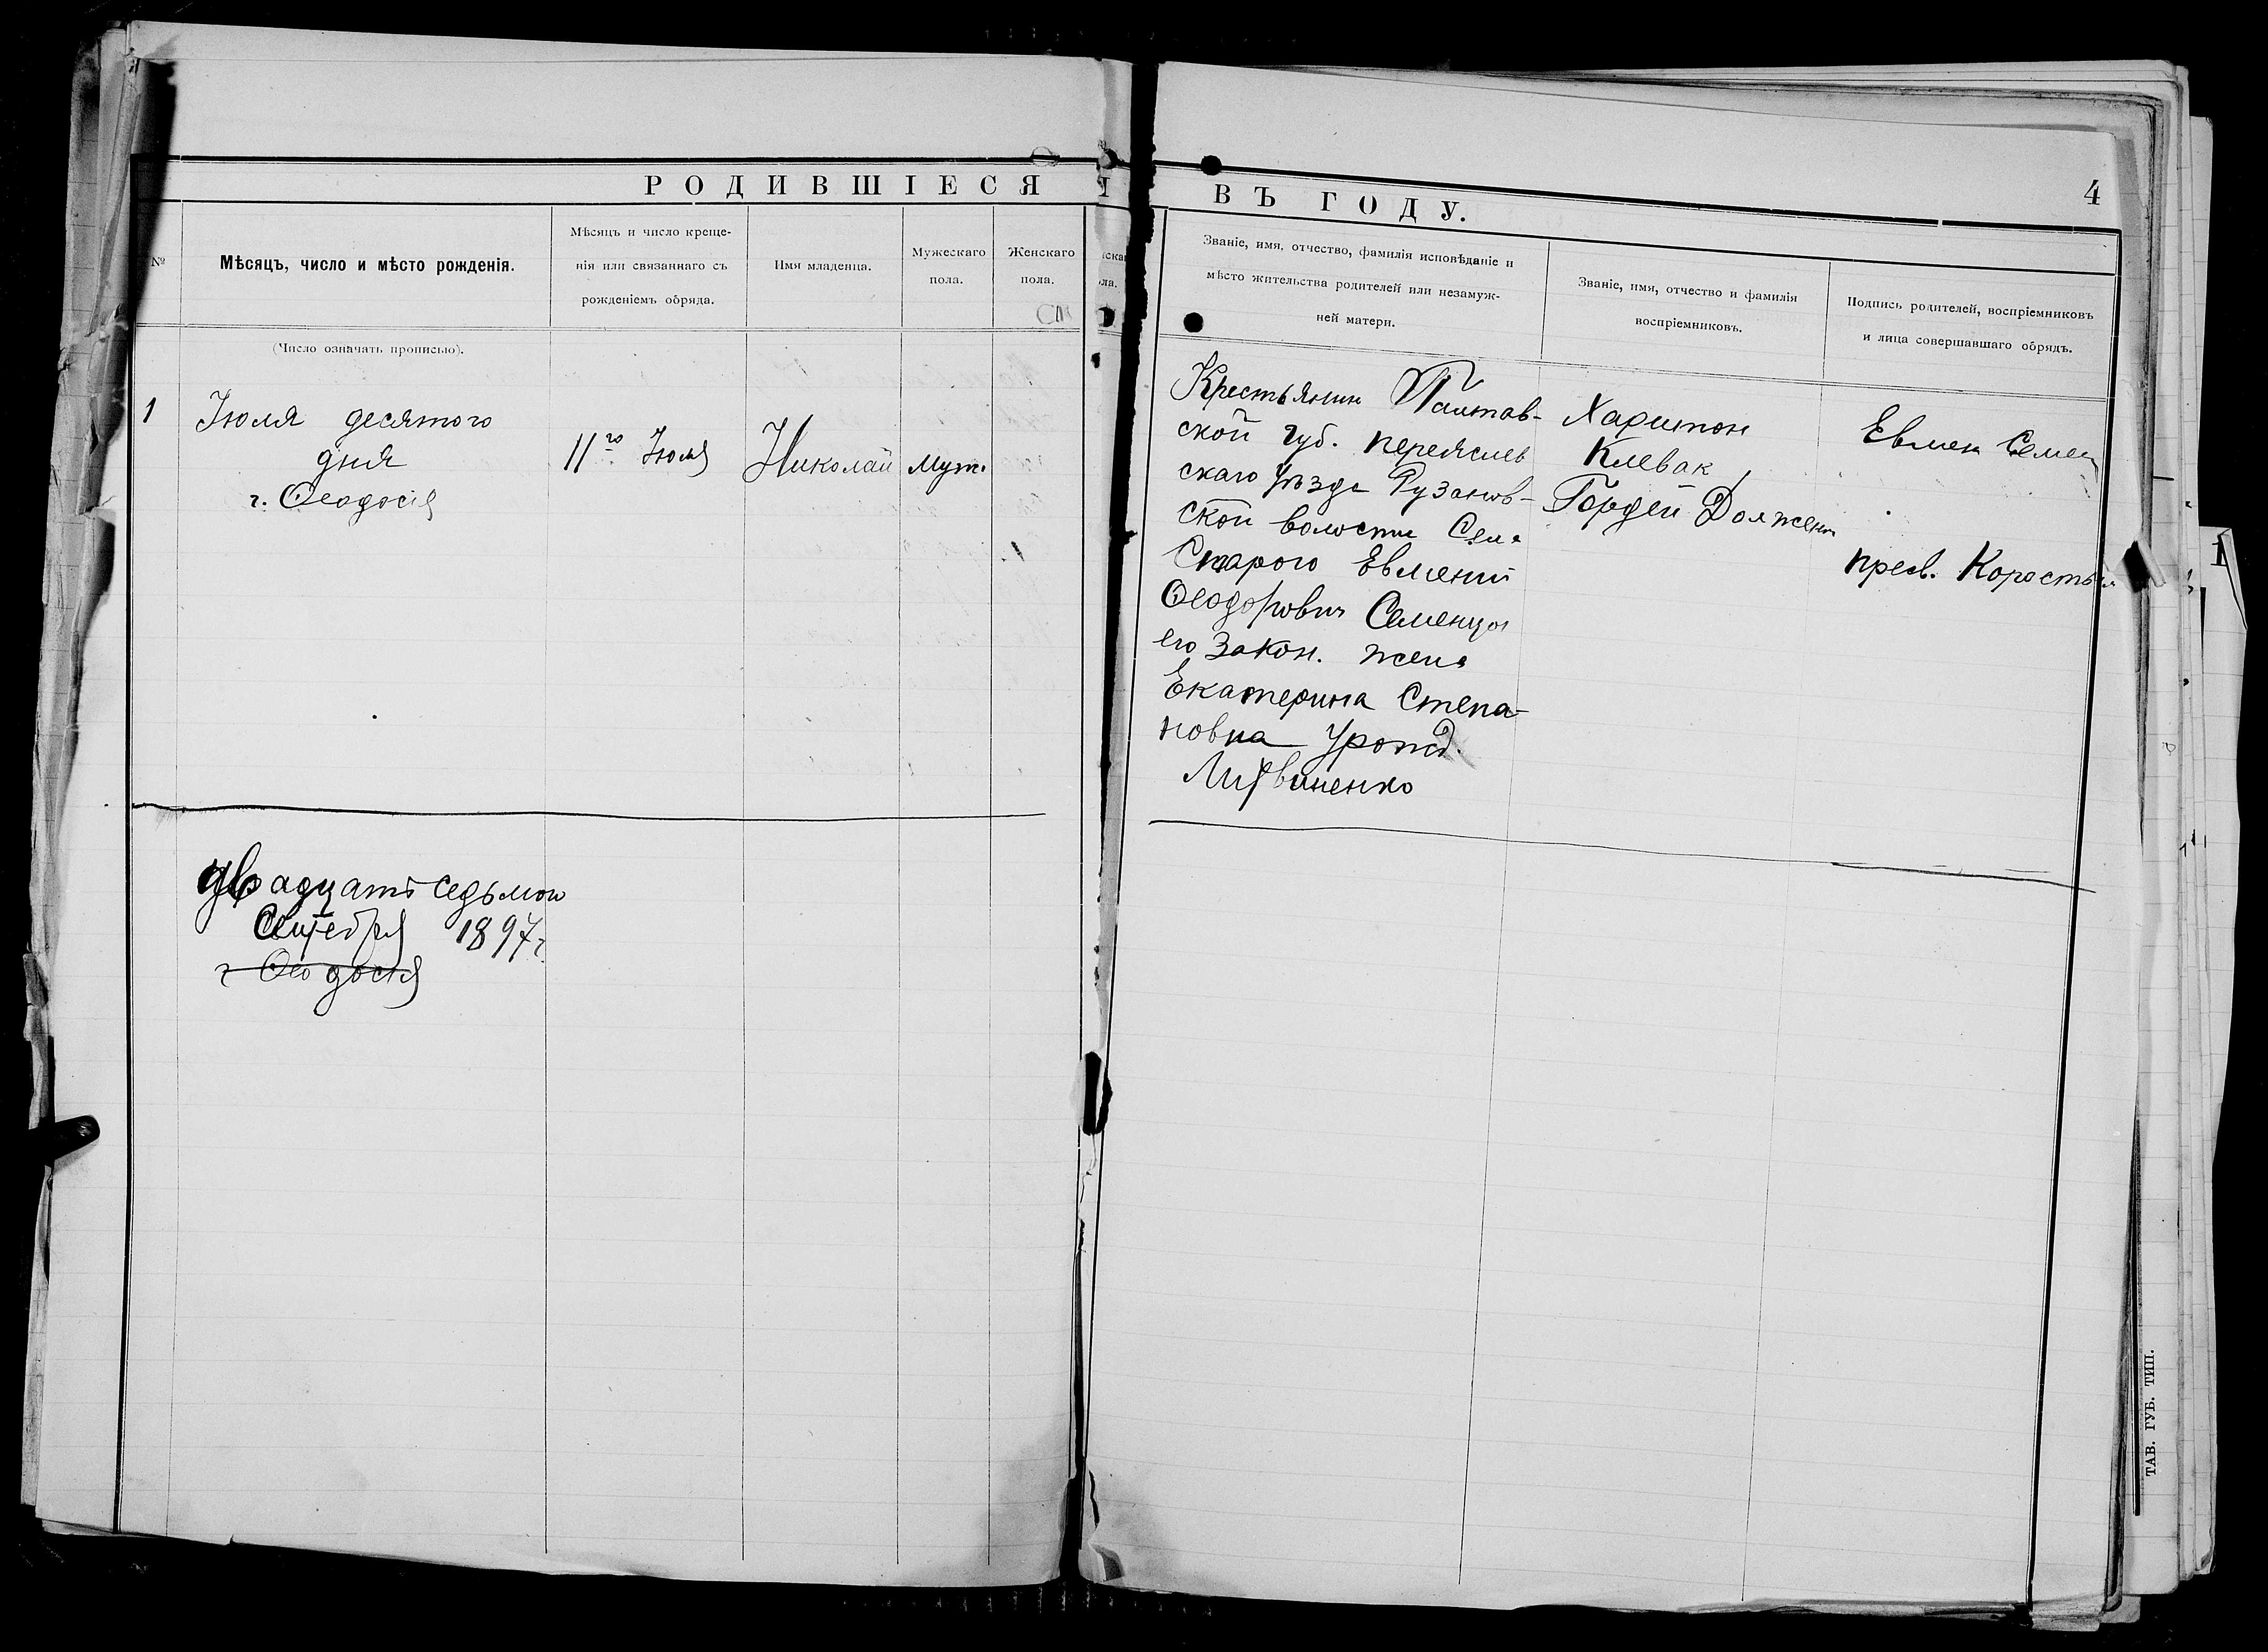 РОДИВШІЕСЯ
ВЪ ГОДУ.
4
№
Мѣсяцъ, число и мѣсто рожденія.
Мѣсяцъ и число креще-
нія или связаннаго съ
рожденіемъ обряда.
Имя младенца.
Мужескаго
пола.
Женскаго
пола.
Званіе, имя, отчество, фамилія исповѣданіе и
мѣсто жительства родителей или незамуж-
ней матери.
Званіе, имя, отчество и фамилія
воспріемниковъ.
Подпись родителей, воспріемниковъ
и лица совершавшаго обрядъ.
(Число означать прописью).
1
Іюля десятого
дня
г. Ѳеодосія
11го Іюля
Николай
Муж.
Крестьянин Палтав-
ской губ. переяслев
скаго уѣзда
ской волости Села
Старого Евмений
Ѳеодорович Семенца
его закон. жена
Екатерина Степа-
новна урожд.
Литвиненко
Харитон
Клевак
Гордей
Евмен Семен
пресв.
двадцать седьмой
Сентебря 1897 г.
г Ѳеодосія
ТАВ. ГУБ. ТИП.